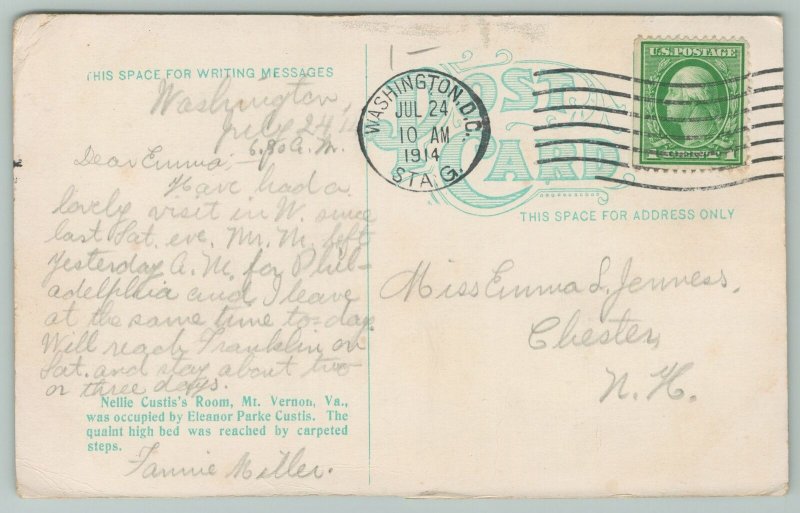 THIS SPACE FOR WRITING MESSAGES
Washington,
July 24
6.30 A.M.
Dear Emma;—
Have had a
lovely visit in W. since
last Sat. eve. Mr. M. left
yesterday A.M. for Phil-
adelphia and I leave
at the same time to-day.
Will reach Franklin on
Sat. and stay about two
or three days.
Nellie Custis's Room, Mt. Vernon, Va.,
was occupied by Eleanor Parke Custis. The
quaint high bed was reached by carpeted
steps.
Fannie Miller.
POST
CARD
WASHINGTON, D.C.
JUL 24
10 AM
1914
STA. G.
U.S. POSTAGE
1 1
THIS SPACE FOR ADDRESS ONLY
Miss Emma L. Jenness,
Chester,
N.H.